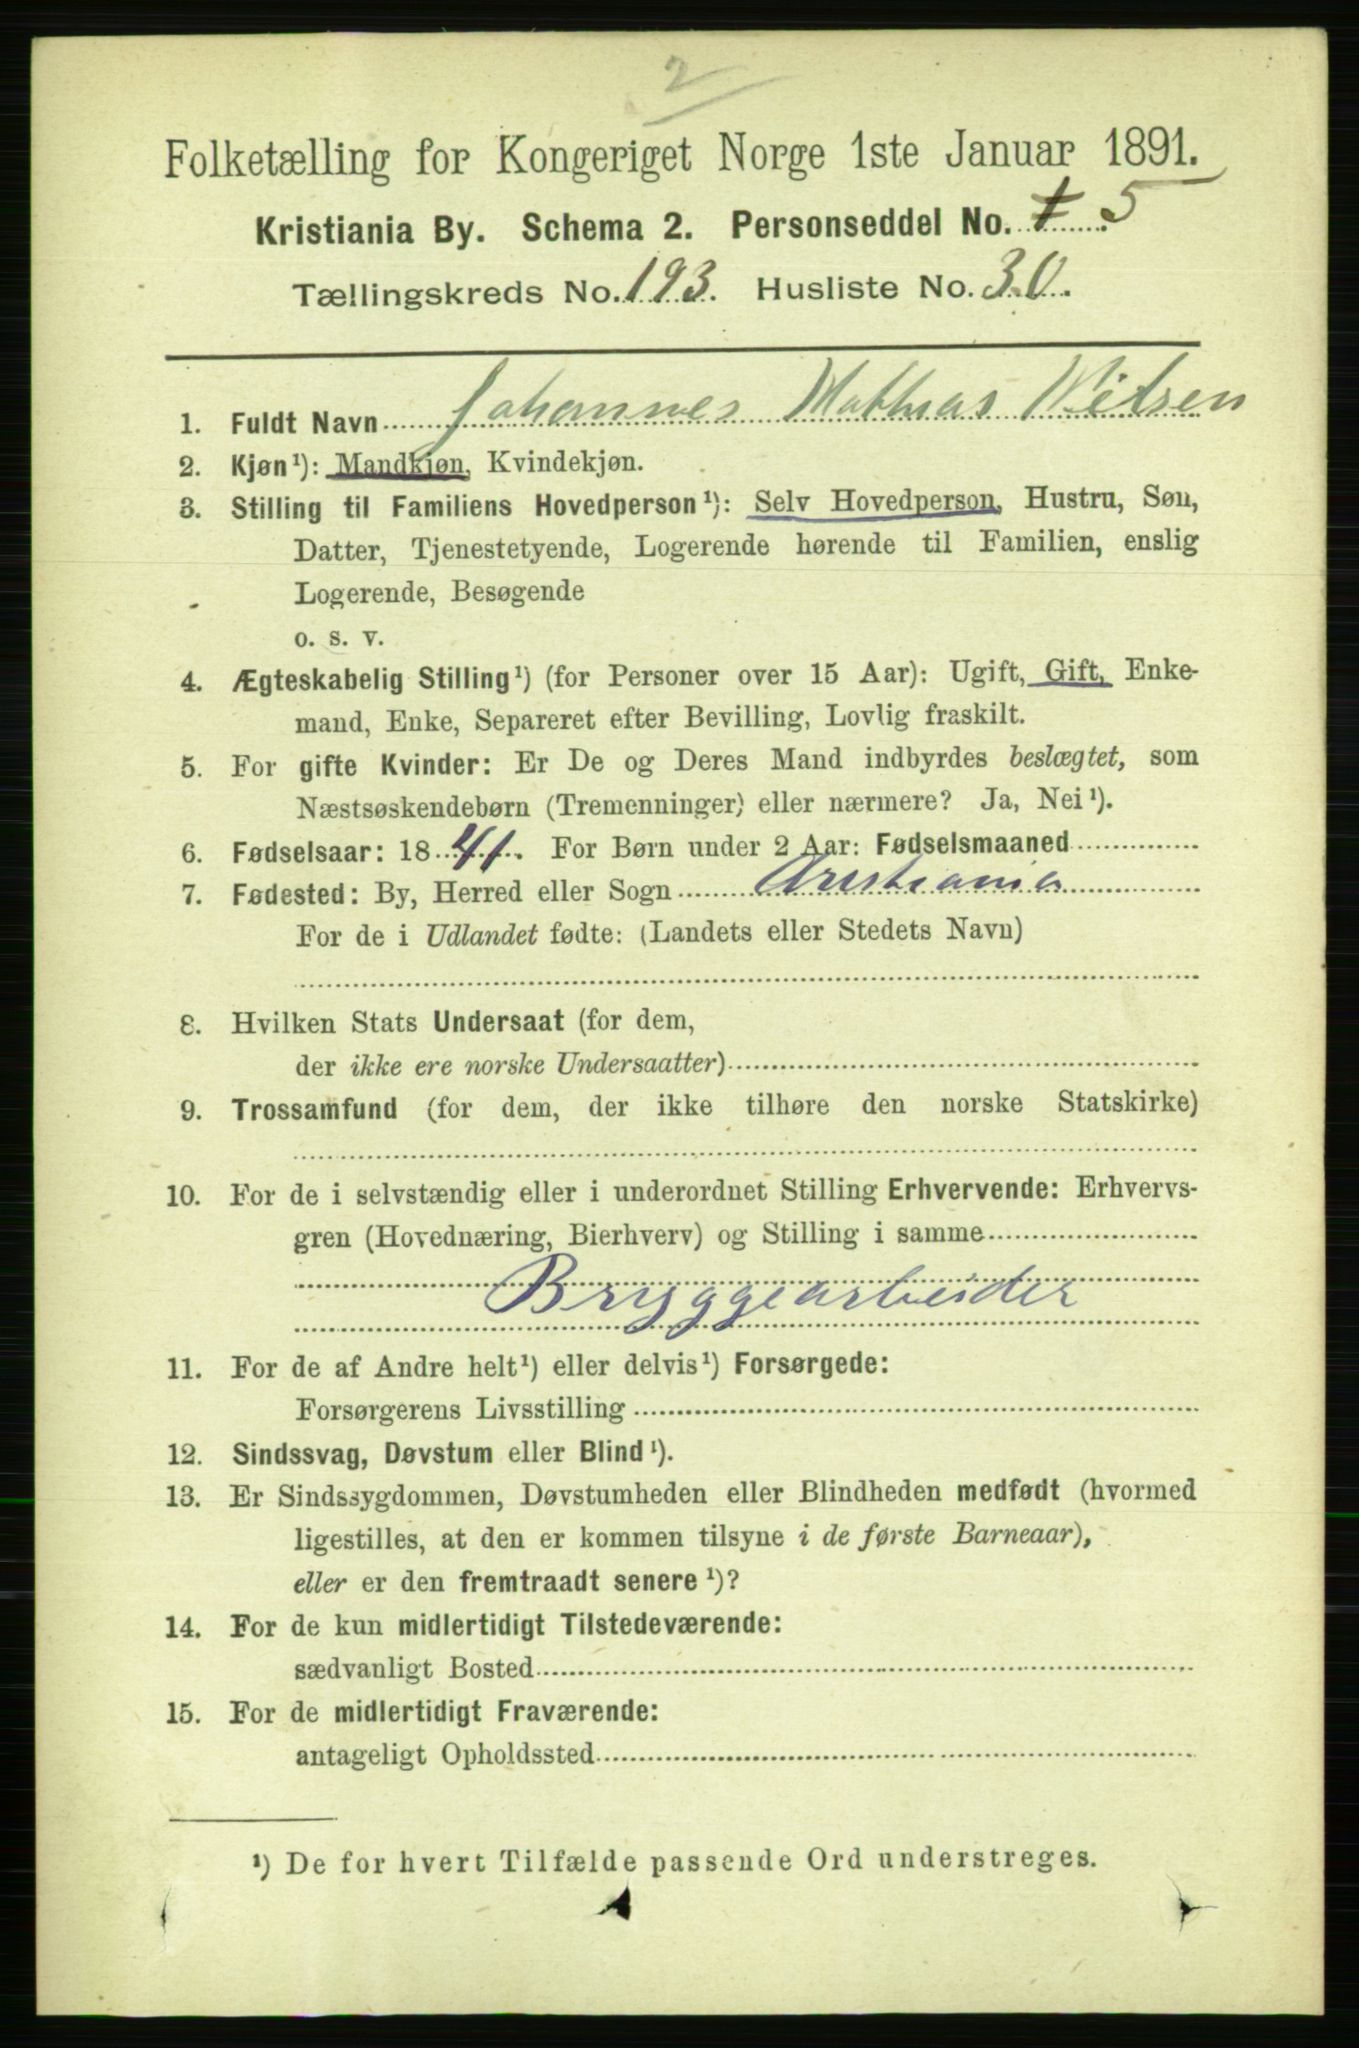 2
Folketælling for Kongeriget Norge 1ste Januar 1891.
Kristiania By. Schema 2. Personseddel No. 5
Tællingskreds No. 193. Husliste No. 30.
1. Fuldt Navn Johannes Mathias Nilsen
2. Kjøn¹): Mandkjøn, Kvindekjøn.
3. Stilling til Familiens Hovedperson¹): Selv Hovedperson, Hustru, Søn,
Datter, Tjenestetyende, Logerende hørende til Familien, enslig
Logerende, Besøgende
o. s. v.
4. Ægteskabelig Stilling¹) (for Personer over 15 Aar): Ugift, Gift, Enke-
mand, Enke, Separeret efter Bevilling, Lovlig fraskilt.
5. For gifte Kvinder: Er De og Deres Mand indbyrdes beslægtet, som
Næstsøskendebørn (Tremenninger) eller nærmere? Ja, Nei¹).
6. Fødselsaar: 1841. For Børn under 2 Aar: Fødselsmaaned
7. Fødested: By, Herred eller Sogn Kristiania
For de i Udlandet fødte: (Landets eller Stedets Navn)
8. Hvilken Stats Undersaat (for dem,
der ikke ere norske Undersaatter)
9. Trossamfund (for dem, der ikke tilhøre den norske Statskirke)
10. For de i selvstændig eller i underordnet Stilling Erhvervende: Erhvervs-
gren (Hovednæring, Bierhverv) og Stilling i samme
Bryggearbeider
11. For de af Andre helt¹) eller delvis¹) Forsørgede:
Forsørgerens Livsstilling
12. Sindssvag, Døvstum eller Blind¹).
13. Er Sindssygdommen, Døvstumheden eller Blindheden medfødt (hvormed
ligestilles, at den er kommen tilsyne i de første Barneaar),
eller er den fremtraadt senere¹)?
14. For de kun midlertidigt Tilstedeværende:
sædvanligt Bosted
15. For de midlertidigt Fraværende:
antageligt Opholdssted
¹) De for hvert Tilfælde passende Ord understreges.